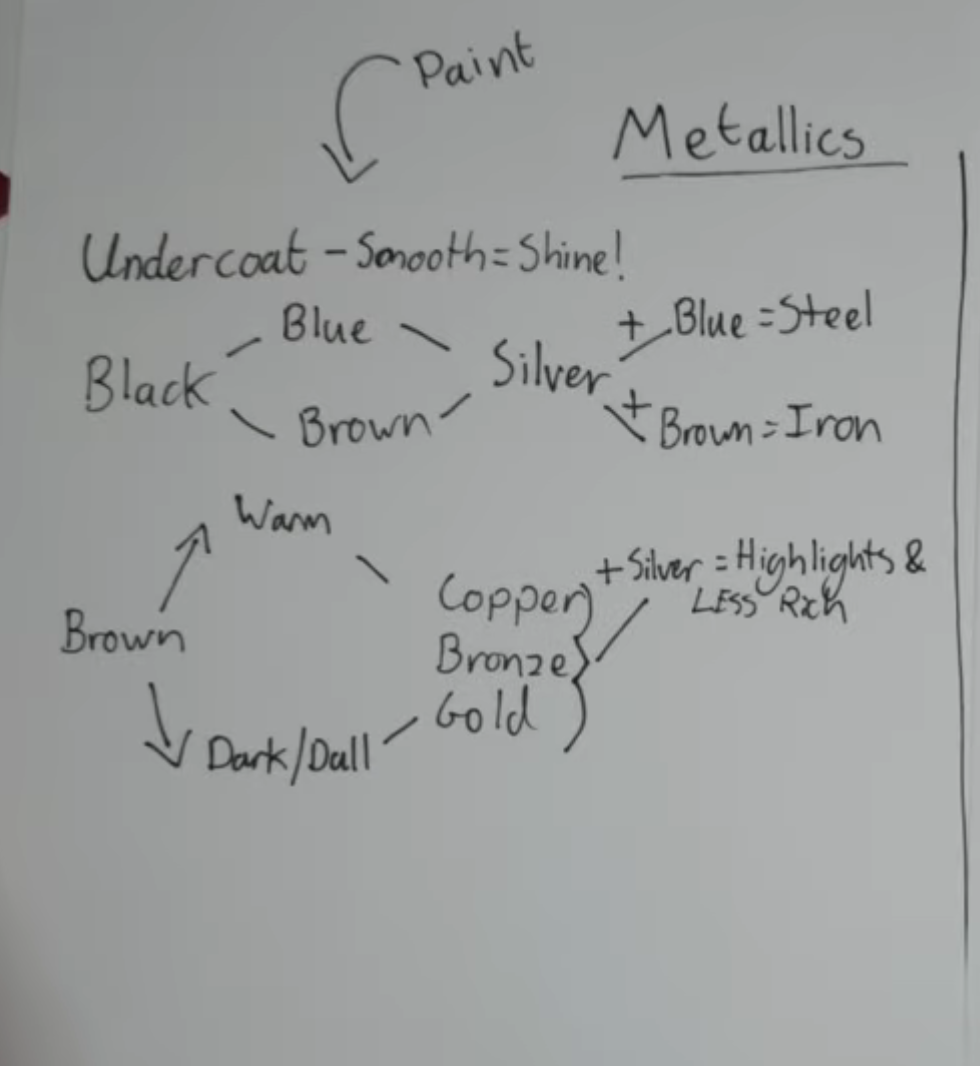 Paint
Metallics
Undercoat - Smooth = Shine!
Blue
+ Blue = Steel
Black
Silver
Brown
+ Brown = Iron
Warm
+ Silver = Highlights &
LESS Rich
Copper
Brown
Bronze
Gold
Dark/Dull